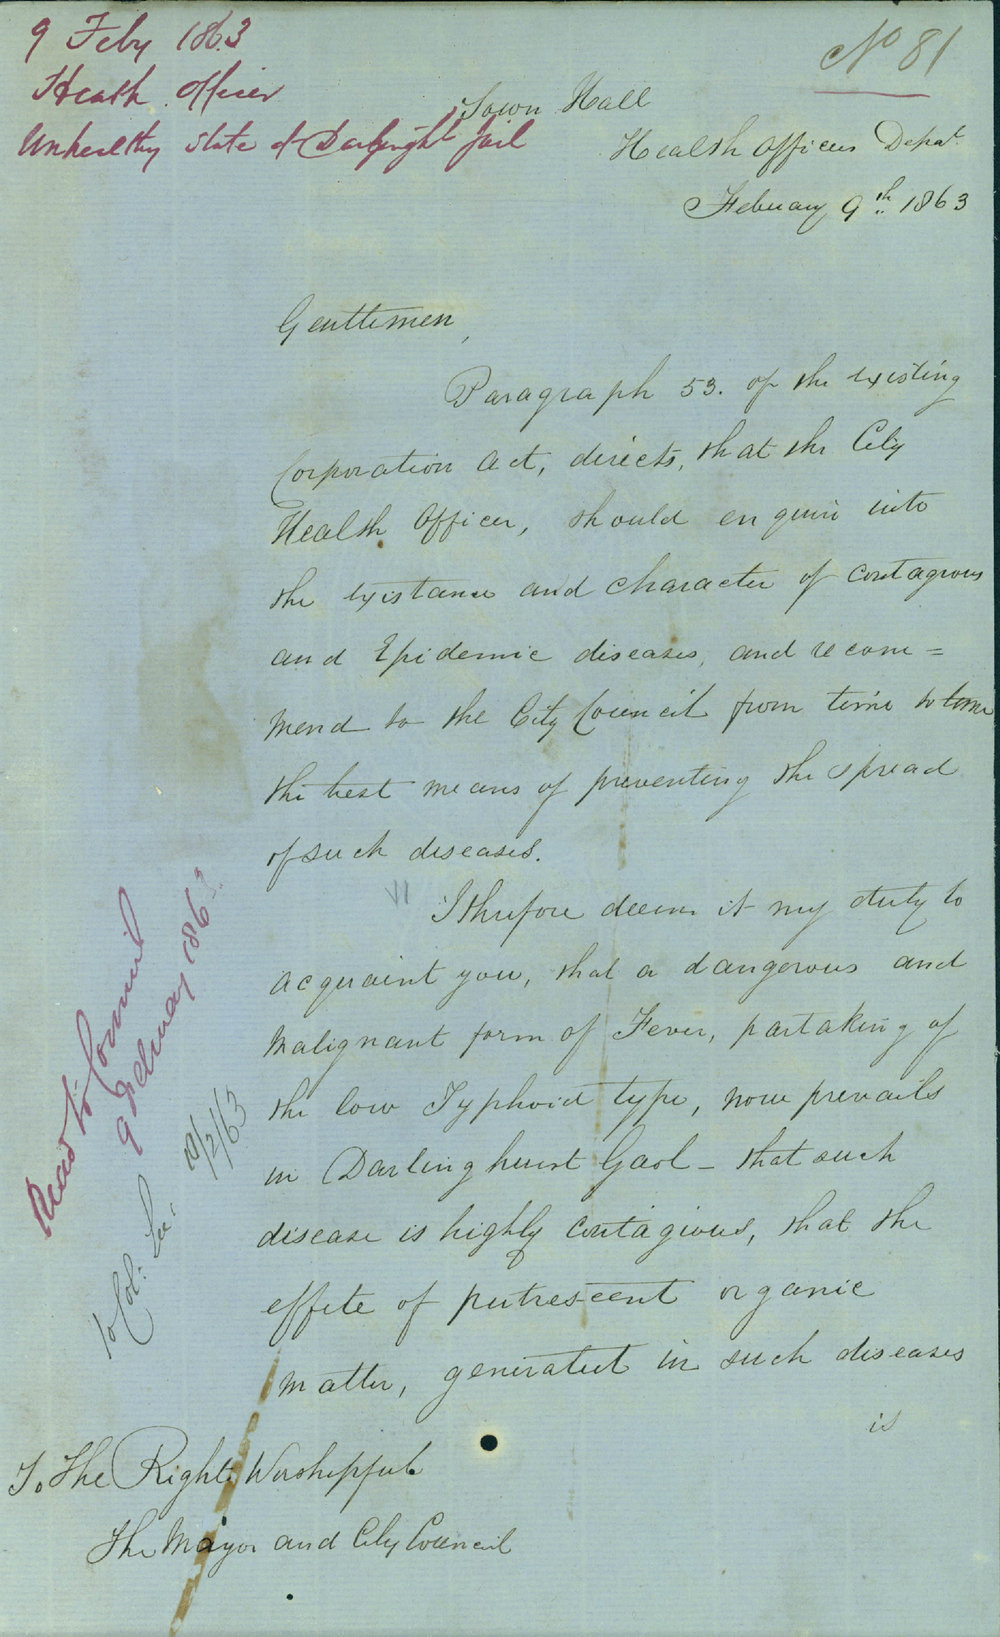 9 Feby 1863
Heath Officer
Unhealthy state of Darlinght Jail
No 81
Town Hall
Health Officers Depat.
Febuary 9th 1863
Gentlemen,
Paragraph 53. of the existing
Corporation Act, directs, that the City
Health Officer, should enquire into
the existance and character of contagious
and Epidemic diseases, and recom=
mend to the City Council from time to time
the best means of preventing the spread
of such diseases.
I therefore deem it my duty to
acquaint you, that a dangerous and
malignant form of Fever, partaking of
the low Typhoid type, now prevails
in Darlinghurst Gaol - that such
disease is highly contagious, that the
effete of putrescent organic
matter, generated in such diseases
is
To The Right Worshipful
The Mayor and City Council
Read to Council
9 February 1863.
To Col: Sec:
10/2/63